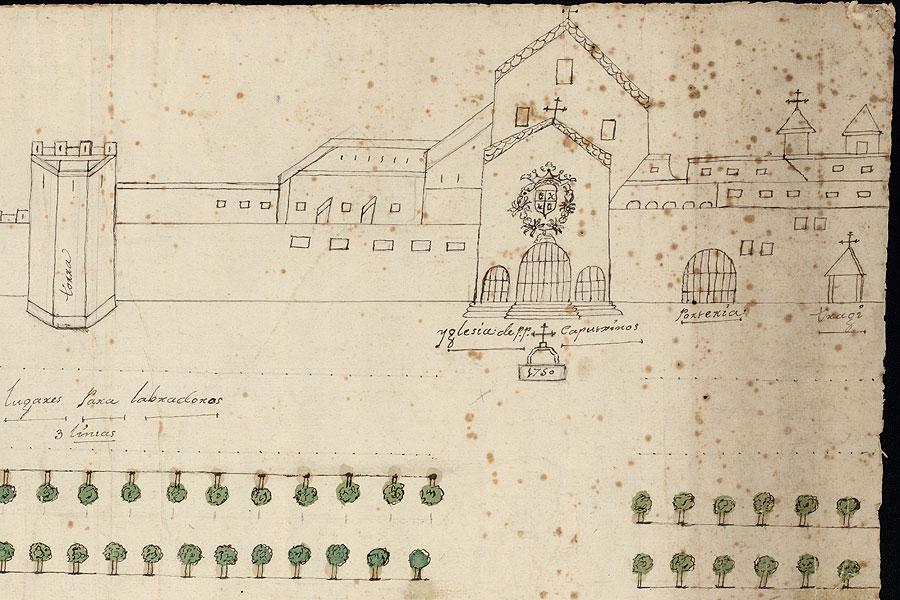 torre
yglesia de p.p. Capuxinos
Porteria
1750
lugares Para labradores
3 linias